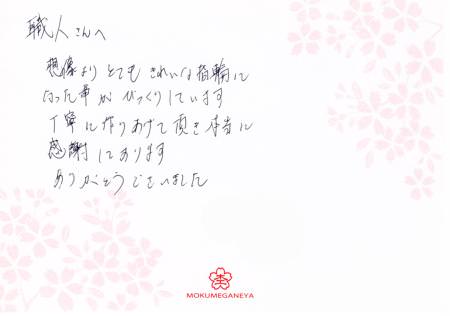 職人さんへ
想像より とても きれいな指輪に
なった事が びっくりしています
丁寧に作りあげて頂き 本当に
感謝しております
ありがとうございました
杢
MOKUMEGANEYA